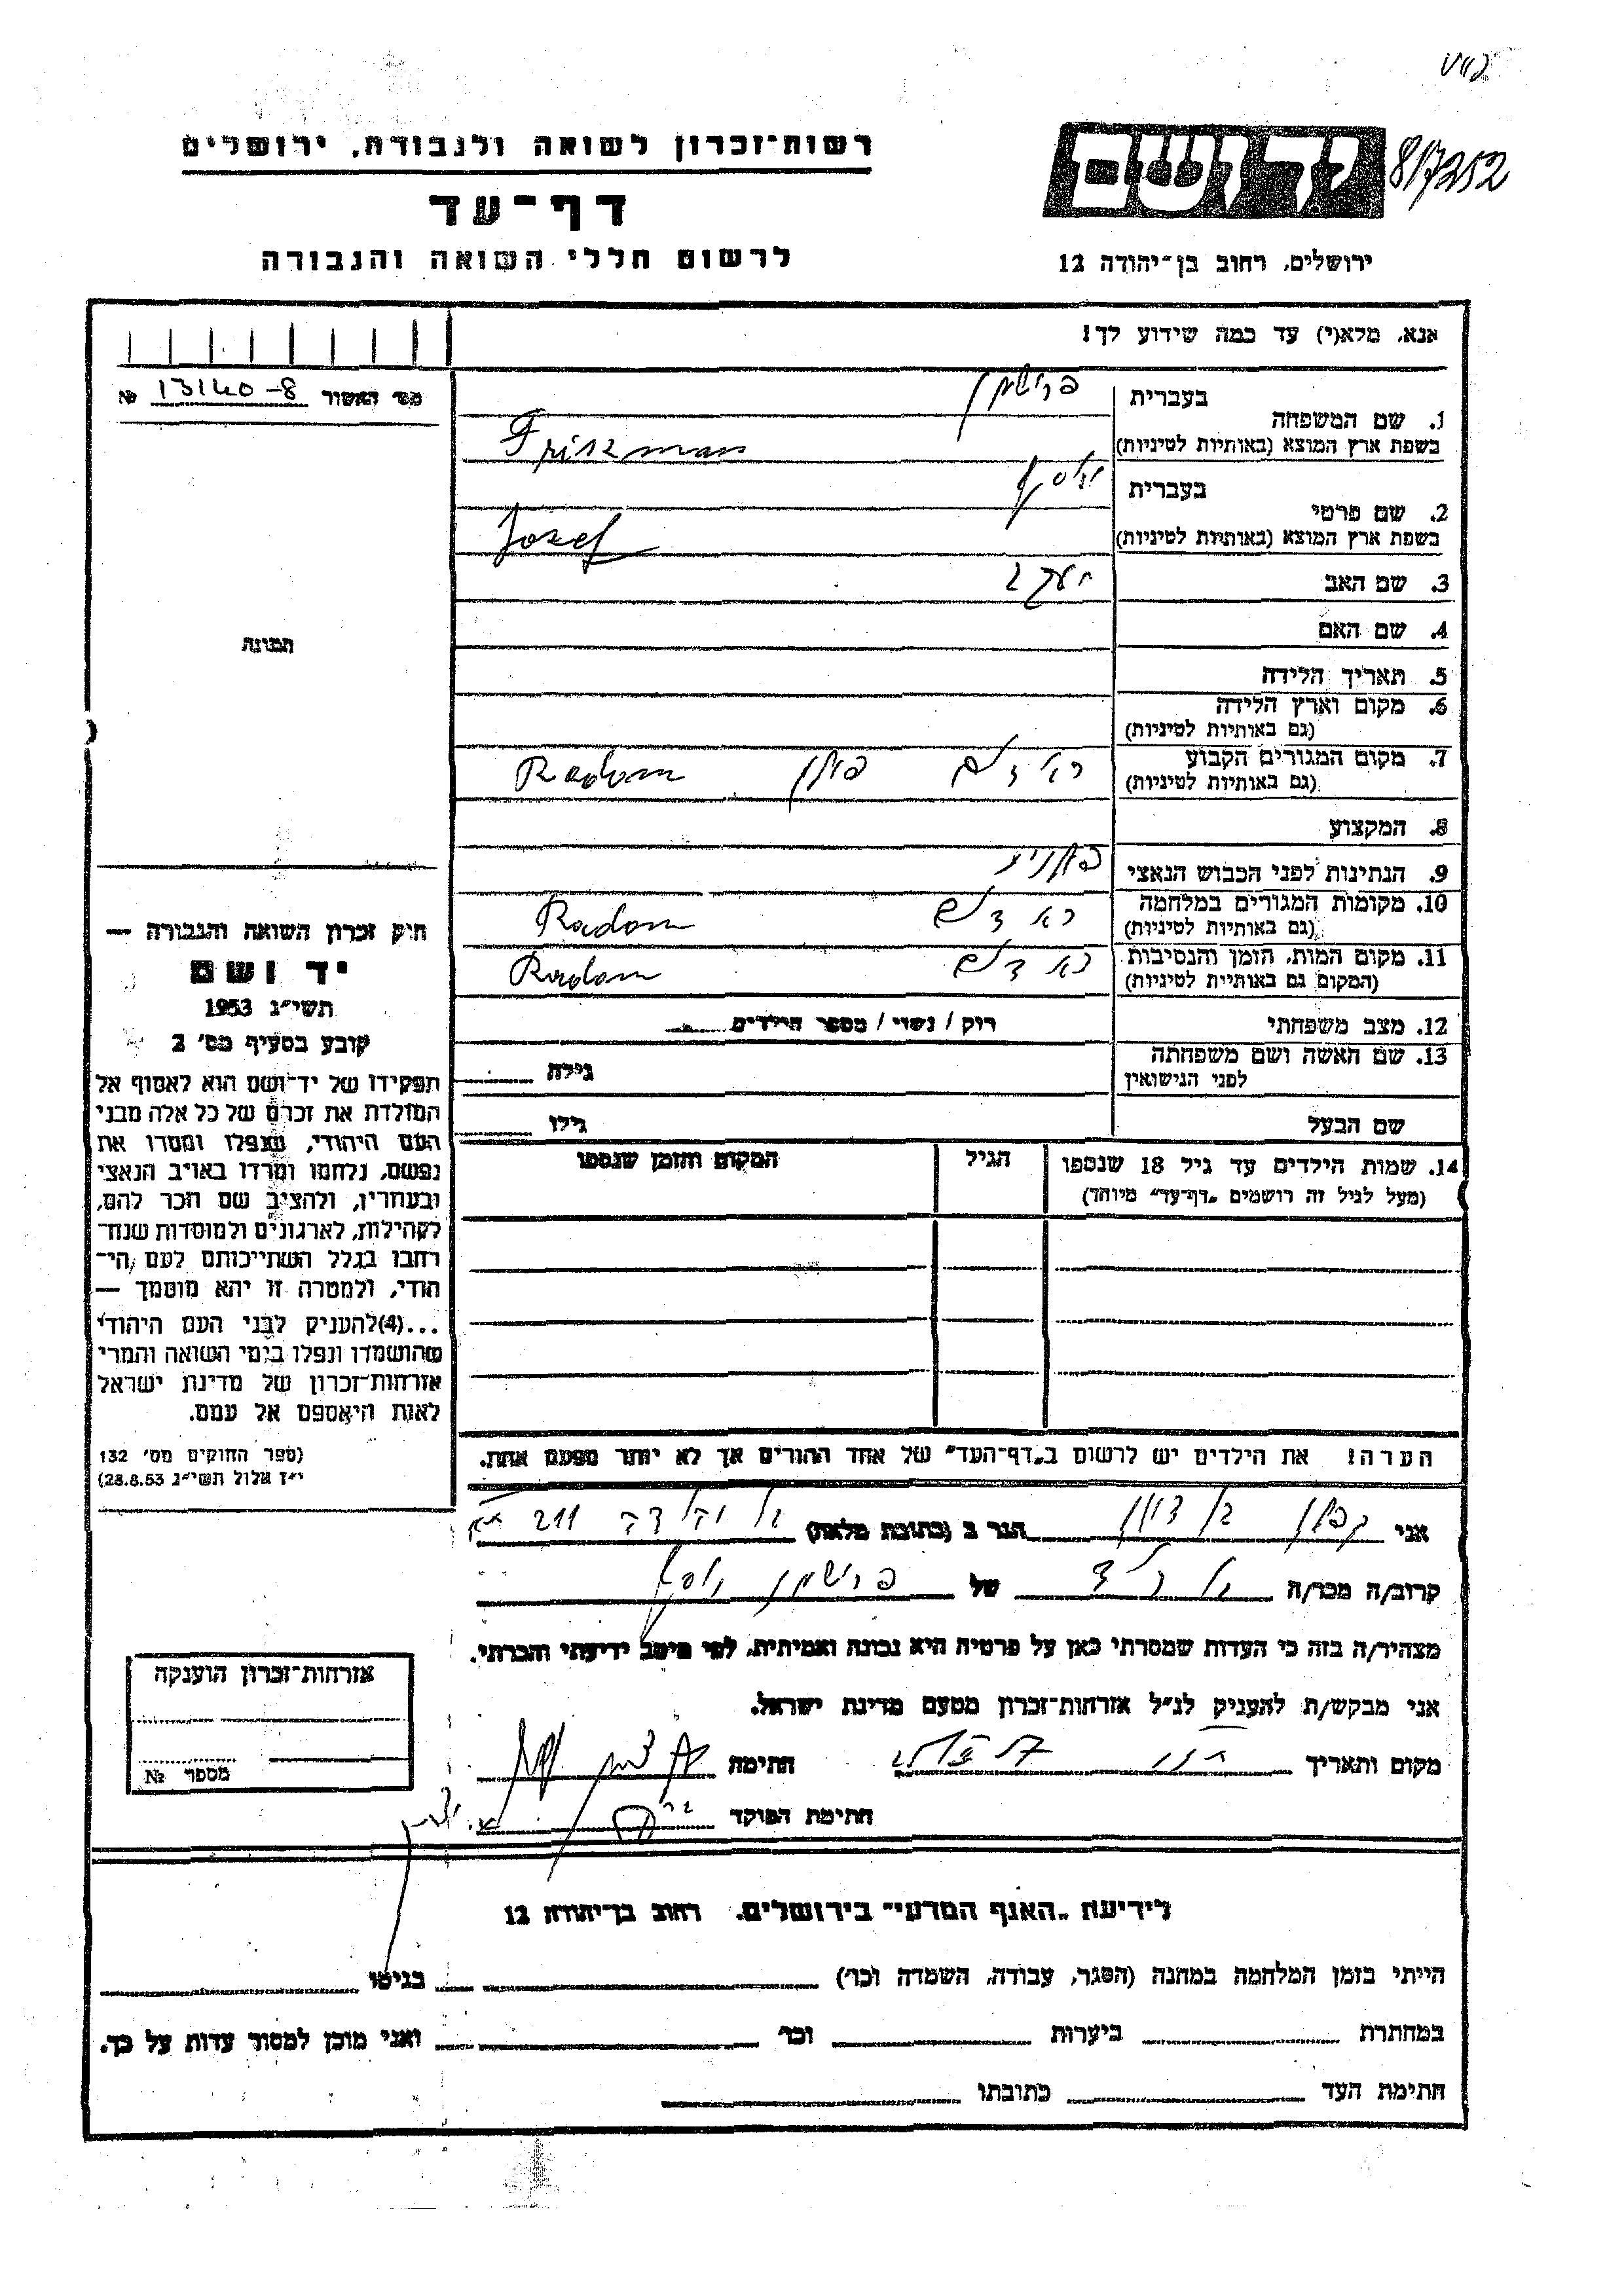 רשות־זכרון לשואה ולגבורה, ירושלים
דף־עד
לרשום חללי השואה והגבורה
יד ושם
8/7252
ירושלים, רחוב בן־יהודה 12
אנא, מלא(י) עד כמה שידוע לך!
מס' האשור 13140-8 №
בעברית פרישמן
1. שם המשפחה
בשפת ארץ המוצא (באותיות לטיניות) Friszman
בעברית יוסף
2. שם פרטי
בשפת ארץ המוצא (באותיות לטיניות) Jozef
3. שם האב יעקב
4. שם האם
תמונה
5. תאריך הלידה
6. מקום וארץ הלידה
(גם באותיות לטיניות)
7. מקום המגורים הקבוע ראדום פולין Radom
(גם באותיות לטיניות)
8. המקצוע
9. הנתינות לפני הכבוש הנאצי פולנית
10. מקומות המגורים במלחמה ראדום Radom
(גם באותיות לטיניות)
11. מקום המות, הזמן והנסיבות ראדום Radom
(המקום גם באותיית לטיניות)
12. מצב משפחתי רוק / נשוי / מספר הילדים
13. שם האשה ושם משפחתה גילה
לפני הנישואין
שם הבעל גילו
14. שמות הילדים עד גיל 18 שנספו הגיל המקום והזמן שנספו
(מעל לגיל זה רושמים „דף־עד" מיוחד)
חוק זכרון השואה והגבורה —
יד ושם
תשי"ג 1953
קובע בסעיף מס' 2
תפקידו של יד־ושם הוא לאסוף אל
המולדת את זכרם של כל אלה מבני
העם היהודי, שנפלו ומסרו את
נפשם, נלחמו ומרדו באויב הנאצי
ובעוזריו, ולהציב שם וזכר להם,
לקהילות, לארגונים ולמוסדות שנח־
רחבו בגלל השתייכותם לעם הי־
הודי, ולמטרה זו יהא מוסמך —
...(4)להעניק לבני העם היהודי
שהושמדו ונפלו בימי השואה והמרי
אזרחות־זכרון של מדינת ישראל
לאות היאספם אל עמם.
(ספר החוקים מס' 132
י"ז אלול תשי"ג 28.8.53)
הערה! את הילדים יש לרשום ב„דף־העד" של אחד ההורים אך לא יותר מפעם אחת.
אני הגר ב (כתובת מלאה) 211
קרוב/ה מכר/ה של פרישמן יוסף
מצהיר/ה בזה כי העדות שמסרתי כאן על פרטיה היא נכונה ואמיתית, לפי מיטב ידיעתי והכרתי.
אני מבקש/ת להעניק לנ"ל אזרחות־זכרון מטעם מדינת ישראל.
מקום ותאריך חתימה
חתימת הפוקד
אזרחות־זכרון הוענקה
מספר №
לידיעת „האגף המדעי" בירושלים, רחוב בן־יהודה 12
הייתי בזמן המלחמה במחנה (הסגר, עבודה, השמדה וכו') בגיטו
במחתרת ביערות וכו' ואני מוכן למסור עדות על כך.
חתימת העד כתובתו